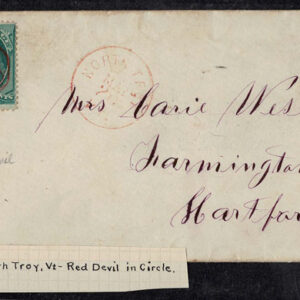 NORTH T
Mrs Carie Wes
Farmington
Hartfor
h Troy, Vt - Red Devil in Circle.